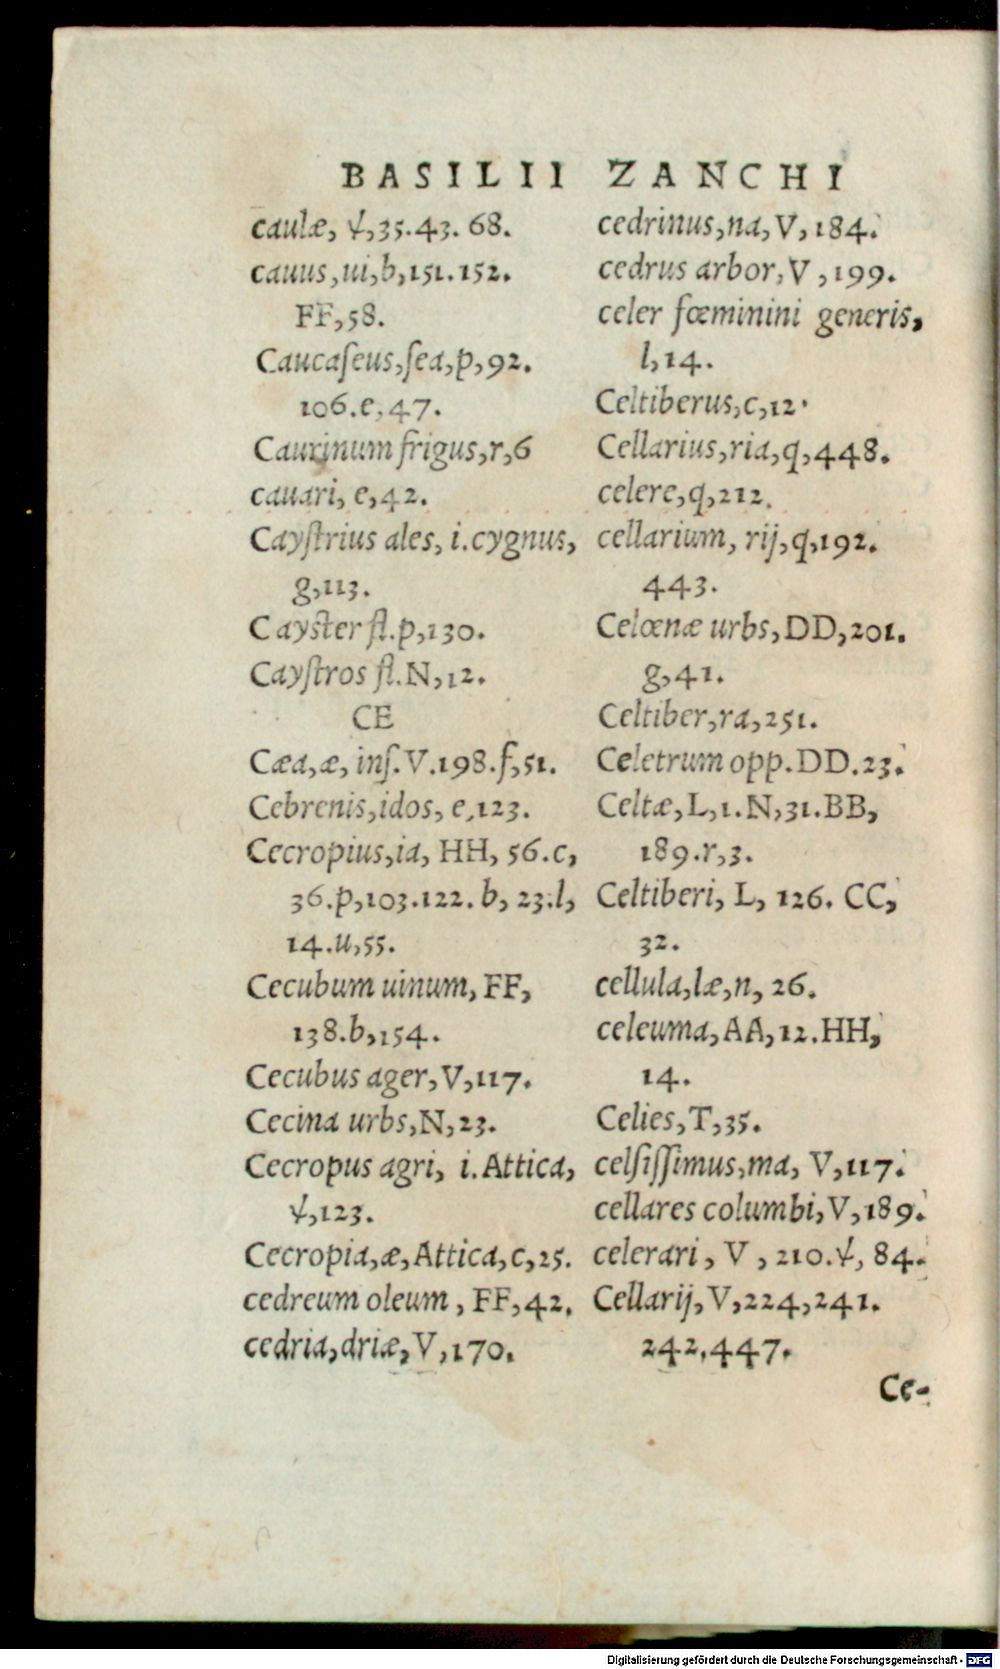 BASILII ZANCHI
caulæ, ψ,35.43. 68.
cauus,ui,b,151.152.
FF,58.
Caucaſeus,ſea,p,92.
106.e,47.
Caurinum frigus,r,6
cauari, e,42.
Cayſtrius ales, i.cygnus,
g,113.
Cayſter fl.p,130.
Cayſtros fl.N,12.
CE
Cæa,æ, inſ.V.198.f,51.
Cebrenis,idos, e,123.
Cecropius,ia, HH, 56.c,
36.p,103.122. b, 23.l,
14.u,55.
Cecubum uinum, FF,
138.b,154.
Cecubus ager,V,117.
Cecina urbs,N,23.
Cecropus agri, i.Attica,
ψ,123.
Cecropia,æ,Attica,c,25.
cedreum oleum , FF,42.
cedria,driæ,V,170.
cedrinus,na,V, 184.
cedrus arbor,V ,199.
celer fœminini generis,
l,14.
Celtiberus,c,12.
Cellarius,ria,q,448.
celere,q,212.
cellarium, rij,q,192.
443.
Celœnæ urbs,DD,201.
g,41.
Celtiber,ra,251.
Celetrum opp.DD.23.
Celtæ,L,1.N,31.BB,
189.r,3.
Celtiberi, L, 126. CC,
32.
cellula,læ,n, 26.
celeuma,AA,12.HH,
14.
Celies,T,35.
celſiſſimus,ma, V,117.
cellares columbi,V,189.
celerari, V , 210.ψ, 84.
Cellarij,V,224,241.
242.447.
Ce-
Digitalisierung gefördert durch die Deutsche Forschungsgemeinschaft - DFG